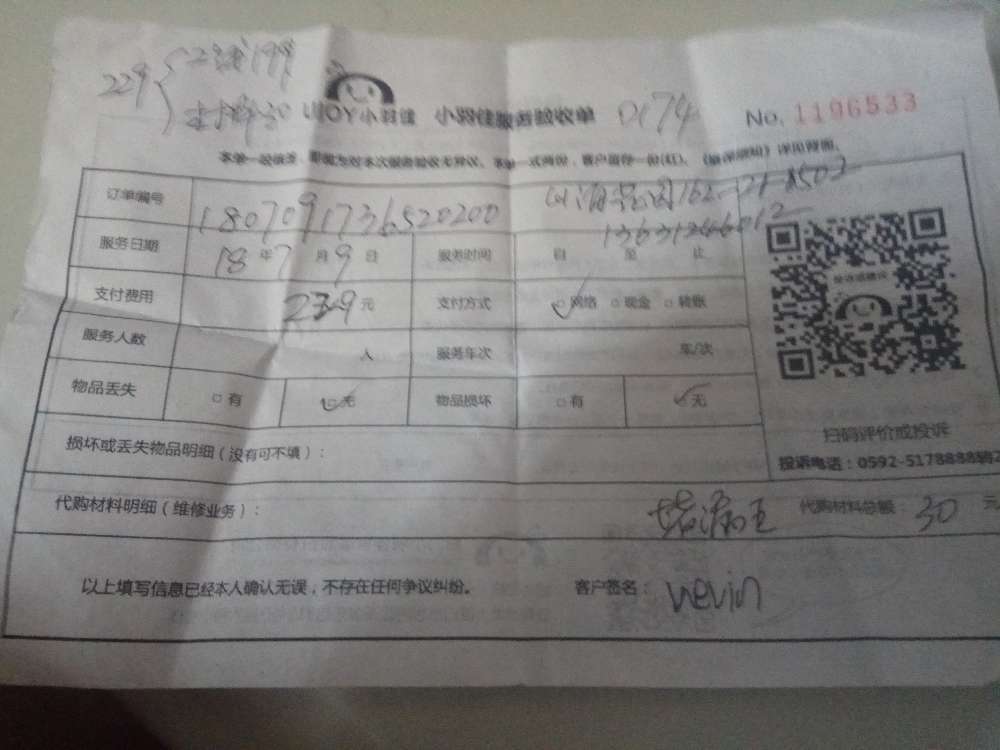 229 { 工钱199
材料30
UJOY小羽佳 小羽佳服务验收单 0174 No. 1196533
订单编号 180709173652020​0 山海花园162-21-1502
13631246012
服务日期 18 年 7 月 9 日 服务时间 自 至 止
支付费用 229 元 支付方式 ☑网络 □现金 □转账
服务人数 人 服务车次 车/次
物品丢失 □有 ☑无 物品损坏 □有 ☑无
扫码评价或投诉
损坏或丢失物品明细（没有可不填）：
投诉电话：0592-5178888转2
代购材料明细（维修业务）： 堵漏王 代购材料总额：30 元
以上填写信息已经本人确认无误，不存在任何争议纠纷。 客户签名：